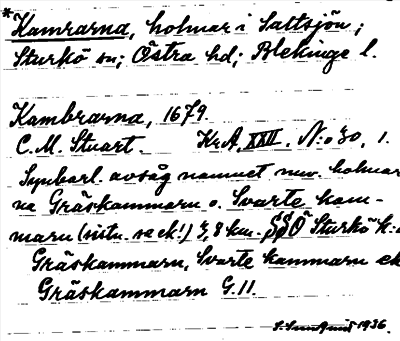 *Kamrarna, holmar i Saltsjön;
Sturkö sn; Östra hd; Blekinge l.
Kambrarna, 1679.
C. M. Stuart. KrA, XXII. N:o 30, 1.
Synbarl. avsåg namnet nuv. holmar
na Gräskammarn o. Svarte kam-
marn (situ. se ek!) 3,8 km. SSO Sturkö k:a
Gräskammarn, Svarte kammarn ek
Gräskammarn G. 11.
1936.